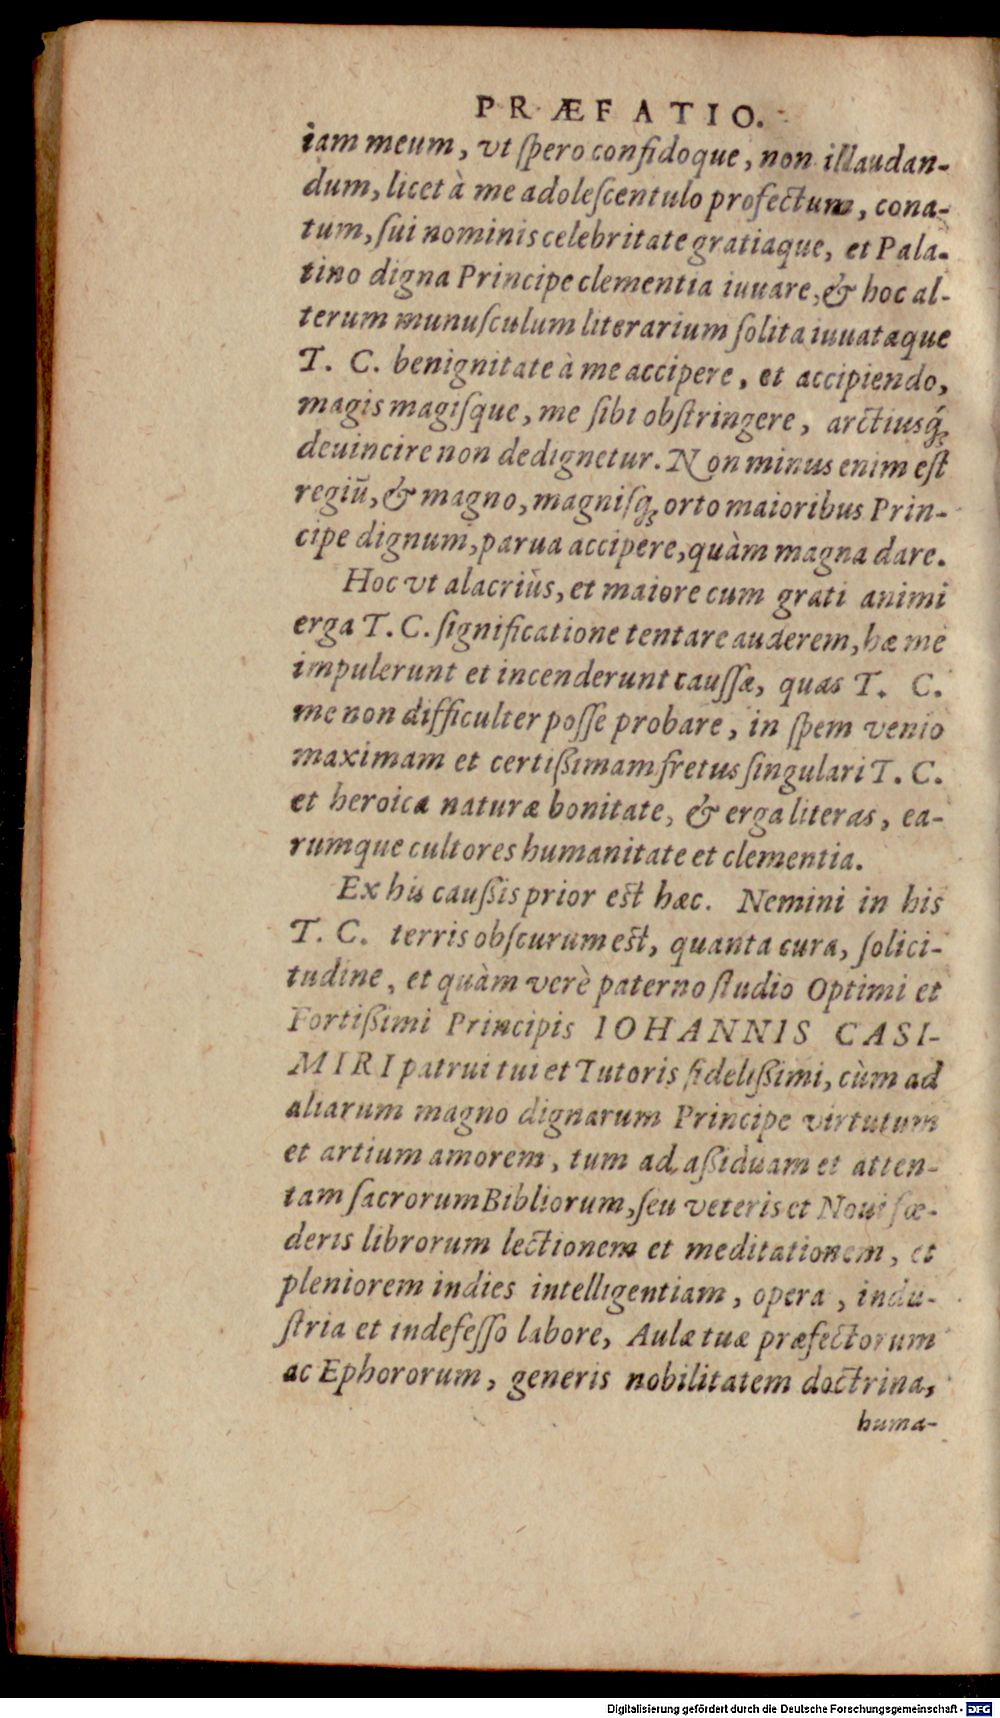 PRÆFATIO.
iam meum, vt ſpero confidoque, non illaudan-
dum, licet à me adoleſcentulo profectum, cona-
tum, ſui nominis celebritate gratiaque, et Pala-
tino digna Principe clementia iuuare, & hoc al-
terum munuſculum literarium ſolita iuuataque
T. C. benignitate à me accipere, et accipiendo,
magis magiſque, me ſibi obſtringere, arctiusq́;
deuincire non dedignetur. Non minus enim eſt
regiū, & magno, magniſq; orto maioribus Prin-
cipe dignum, parua accipere, quàm magna dare.
Hoc vt alacriùs, et maiore cum grati animi
erga T. C. ſignificatione tentare auderem, hæ me
impulerunt et incenderunt cauſſæ, quas T. C.
me non difficulter poſſe probare, in ſpem venio
maximam et certißimam fretus ſingulari T. C.
et heroica naturæ bonitate, & erga literas, ea-
rumque cultores humanitate et clementia.
Ex his cauſsis prior eſt hæc. Nemini in his
T. C. terris obſcurum eſt, quanta cura, ſolici-
tudine, et quàm verè paterno ſtudio Optimi et
Fortißimi Principis IOHANNIS CASI-
MIRI patrui tui et Tutoris fidelißimi, cùm ad
aliarum magno dignarum Principe virtutum
et artium amorem, tum ad aßiduam et atten-
tam ſacrorum Bibliorum, ſeu veteris et Noui fœ-
deris librorum lectionem et meditationem, et
pleniorem indies intelligentiam, opera, indu-
ſtria et indefeſſo labore, Aulæ tuæ præfectorum
ac Ephororum, generis nobilitatem doctrina,
huma-
Digitalisierung gefördert durch die Deutsche Forschungsgemeinschaft - DFG